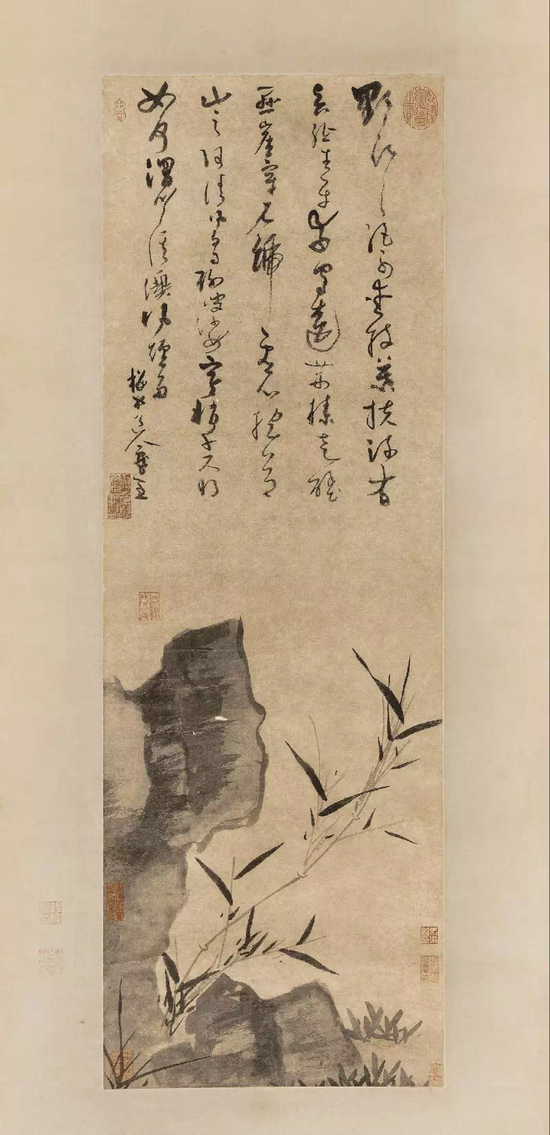 野竹〻絕可愛枝葉扶疏有
真態生平素守遠荊榛走壁
懸崖穿石罅虛心抱節
山之阿清風白月聊婆娑寒梢千尺將
如何渭川淇澳風煙多
梅花道人戲墨